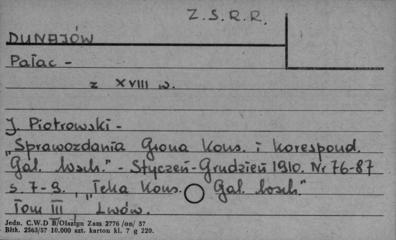 Z.S.R.R.
DUNAJÓW
Pałac -
z XVIII w.
J. Piotrowski -
"Sprawozdania Grona Kons. i korespond.
Gal. wsch." - Styczeń-Grudzień 1910. Nr 76-87
s. 7-9. "Teka Kons. Gal. wsch."
Tom III, Lwów.
Jedn. C.W.D B/Olsztyn Zam 2776 /on/ 57
Błtk. 2563/57 10.000 szt. karton kl. 7 g 220.